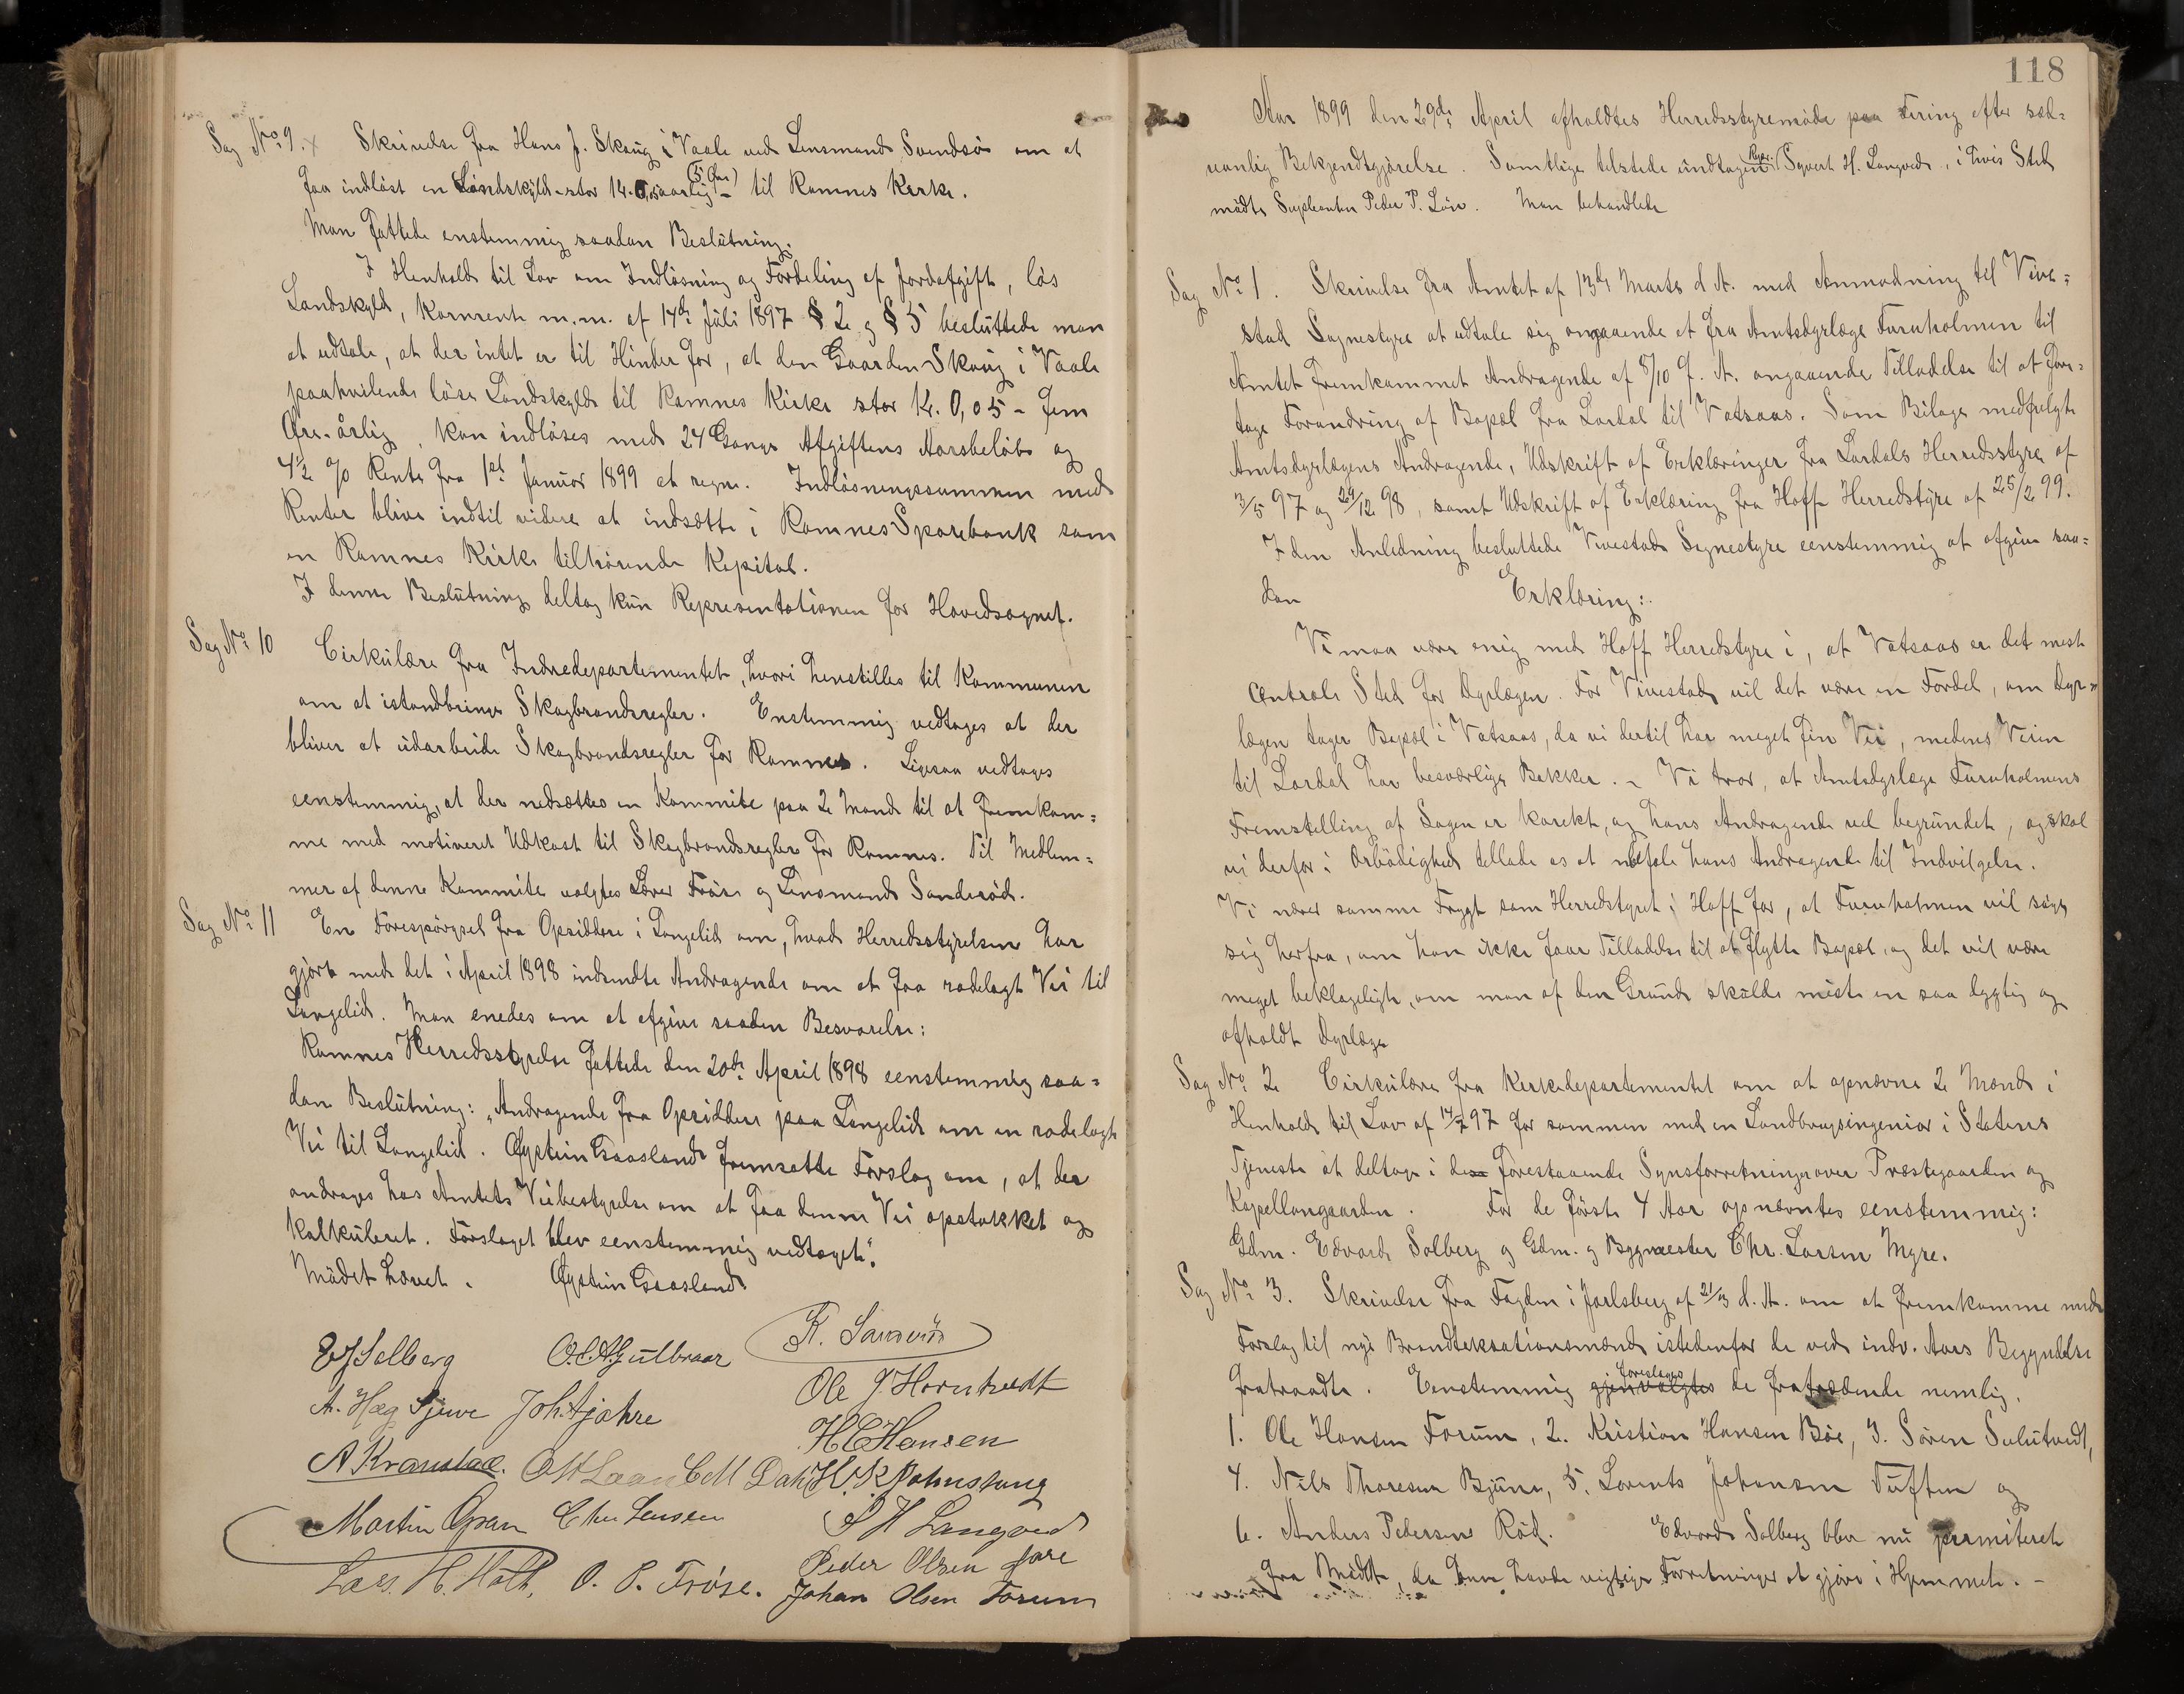 Sag No 9. x Skrivelse fra Hans J. Skoug i Vaale ved Lensmand Svendsø om at
faa indløst en Landskyld stor Kr. 0,05 aarlig (5 Øre) til Ramnes Kirke.
Man fattede enstemmig saadan Beslutning.
I Henhold til Lov om Indløsning og Fordeling af Jordafgift, løs
Landskyld, Kornrente m.m. af 14de Juli 1897 § 2 og § 5 besluttede man
at udtale, at der intet er til Hinder for, at den Gaarden Skoug i Vaale
paahvilende løse Landskyld til Ramnes Kirke stor Kr. 0,05 - fem
Øre - årlig, kan indløses med 24 Gange Afgiftens Aarsbeløb og
4½ % Rente fra 1ste Januar 1899 at regne. Indløsningssummen med
Renter blive indtil videre at indsætte i Ramnes Sparebank som
en Ramnes Kirke tilhørende Kapital.
I denne Beslutning deltog kun Repræsentationen for Hovedsognet.
Sag No 10 Cirkulære fra Indredepartementet, hvori henstilles til Kommunen
om at istandbringe Skogbrandsregler. Enstemmig vedtages at der
bliver at udarbeide Skogbrandsregler for Ramnes. Ligesaa vedtages
eenstemmig, at der nedsættes en Kommite paa 2 Mand til at fremkom=
me med motiveret Udkast til Skogbrandsregler for Ramnes. Til Medlem=
mer af denne Kommite valgtes Lærer Frøse og Lensmand Sanderød.
Sag No 11 En Forespørgsel fra Opsiddere i Langelid om, hvad Herredsstyrelsen har
gjort med det i April 1898 indsendte Andragende om at faa rodelagt Vei til
Langelid. Man enedes om at afgive saadan Besvarelse:
Ramnes Herredsstyrelse fattede den 20de April 1898 eenstemmig saa=
dan Beslutning: „Andragende fra Opsiddere paa Langelid om en rodelagt
Vei til Langelid. Øystein Gaasland fremsatte Forslag om, at der
andrages hos Amtets Veibestyrelse om at faa denne Vei opstukket og
kalkuleret. Forslaget blev eenstemmig vedtaget“.
Mødet hævet. Øystein Gaasland
E J Solberg O.C.A. Gulbraar K. Sanderød
A. Hæg Sjuve Joh. A jahre Ole J. Horntvedt
H C Hansen
A Kranstad. O H Laan C M Dahl H. K Holmslung
Martin Gran Chr Jensen S H Langved
Lars. H. Holt, O. P. Frøse. Peder Olsen Jare
Johan Olsen Forum
118
Aar 1899 den 29de April afholdtes Herredsstyremøde paa Fering efter sæd=
vanlig Bekjendtgjørelse. Samtlige tilstede undtagen Repr. Syvert H. Langved, i hvis Sted
mødte Supleanten Peder P. Løn. Man behandlede
Sag No 1. Skrivelse fra Amtet af 13de Marts d A. med Anmodning til Vive=
stad Sognestyre at udtale sig angaaende et fra Amtsdyrlæge Furuholmen til
Amtet fremkommet Andragende af 8/10 f. A. angaaende Tilladelse til at fore=
tage Forandring af Bopæl fra Lardal til Vatsaas. Som Bilage medfulgte
Amtsdyrlægens Andragende, Udskrift af Erklæringer fra Lardals Herredsstyre af
3/5 97 og 29/12 98, samt Udskrift af Erklæring fra Hoff Herredstyre af 25/2 99.
I den Anledning besluttede Vivestad Sognestyre eenstemmig at afgive saa=
dan Erklæring:
Vi maa være enig med Hoff Herredstyre i, at Vatsaas er det mest
centrale Sted for Dyrlægen. For Vivestad vil det være en Fordel, om Dyr=
lægen tager Bopæl i Vatsaas, da vi dertil har meget fin Vei, medens Veien
til Lardal har besværlige Bakker. - Vi tror, at Amtsdyrlæge Furuholmens
Fremstilling af Sagen er korekt, og hans Andragende vel begrundet, og skal
vi derfor i Ærbødighed tillade os at anbefale hans Andragende til Indvilgelse.
Vi nærer samme Frygt som Herredstyret i Hoff for, at Furuholmen vil søge
sig herfra, om han ikke faar Tilladelse til at flytte Bopæl, og det vil være
meget beklageligt, om man af den Grund skulde miste en saa dygtig og
afholdt Dyrlæge
Sag No 2 Cirkulære fra Kirkedepartementet om at opnævne 2 Mænd i
Henhold til Lov af 14/7 97 for sammen med en Landbrugsingeniør i Statens
Tjeneste at deltage i de forestaaende Synsforretninger over Præstegaarden og
Kapellangaarden. For de første 4 Aar opnævntes eenstemmig:
Gdm. Edvard Solberg og Gdm. og Bygmester Chr. Larsen Myre.
Sag No 3. Skrivelse fra Fogden i Jarlsberg af 21/3 d. A. om at fremkomme med
Forslag til nye Brandtaksationsmænd istedenfor de ved indv. Aars Begyndelse
fratraadte. Eenstemmig gjenvalgtes foreslages de fratrædende nemlig.
1. Ole Hansen Forum, 2. Kristian Hansen Bøe, 3. Søren Sulutvedt,
4. Nils Thoresen Bjune, 5. Lorents Johansen Tuften og
6. Anders Pedersen Rød. Edvard Solberg blev nu permiteret
fra Mødet, da han havde vigtige Forretninger at gjøre i Hjemmet. -